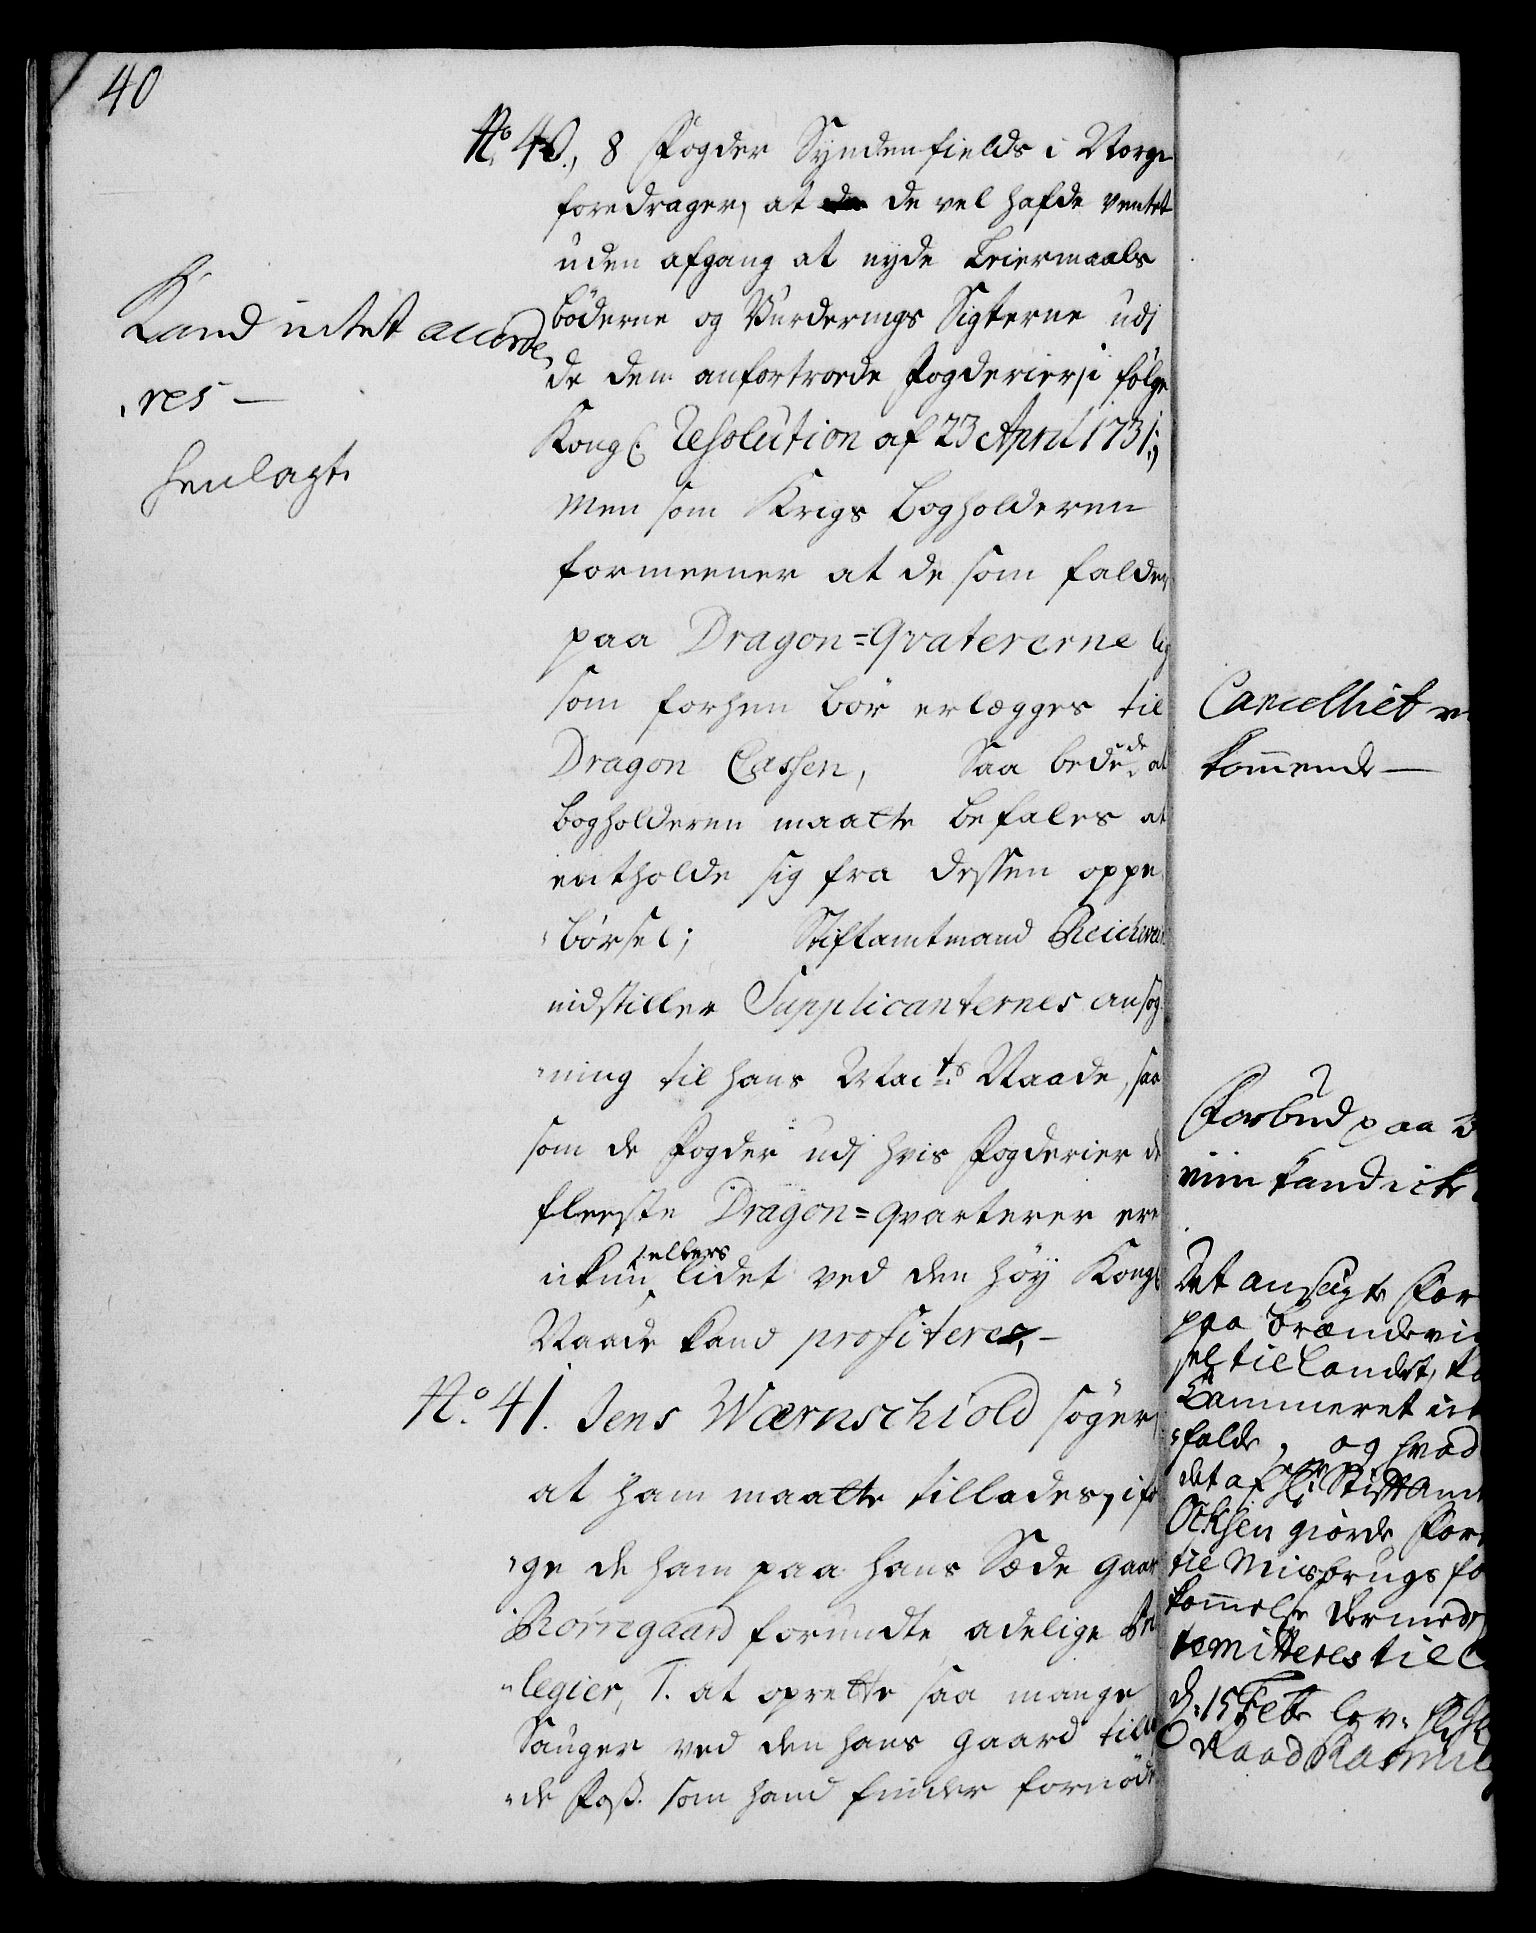 40
No. 40., 8 Fogder Syndenfields i Norge
foredrager, at de vel hafde ventet
uden afgang at nyde Leiermaals
bøderne og Vurderings Sigterne udj
de dem anfortroede Fogderier, i følge
Kongl: Resolution af 23 April 1731;,
Men som Krigs Bogholderen
formeener at de som falder
paa Dragon=Qvatererne lig
som forhen bør erlægges til
Dragon Cassen, Saa bede de at
bogholderen maatte befales at
entholde sig fra dessen oppe-
børsel; Stiftamtmand Reichwein
indstiller Supplicanternes ansøg-
ning til hans Maits Naade, saa
som de Fogder udj hvis Fogderier de
fleeste Dragon=qvarterer ere
ickun ellers lidet ved den høy Kongl
Naade kand profitere, –
Kand intet accorde-
res –
henlagt
No. 41. Jens Wærnschiold søger,
at ham maatte tillades, ifø
ge de ham paa hans Sæde gaar
forundte adelige Pri
legier, 1. at oprette saa mange
Sauger ved den hans gaard till
de Foss. som hand finder fornøde
Cancelliet v
kommende –
Forbud paa B
viin kand icke
Det ansøgte For
paa Brændevi
sel til landet, ka
Cammeret ick
falde, og hvad
det af Hr Stiftamt
Ochsen giorde For
til Misbrugs fo
kommelse dermed
remitteres til C
d. 15 Feb.
Raad Rasmus